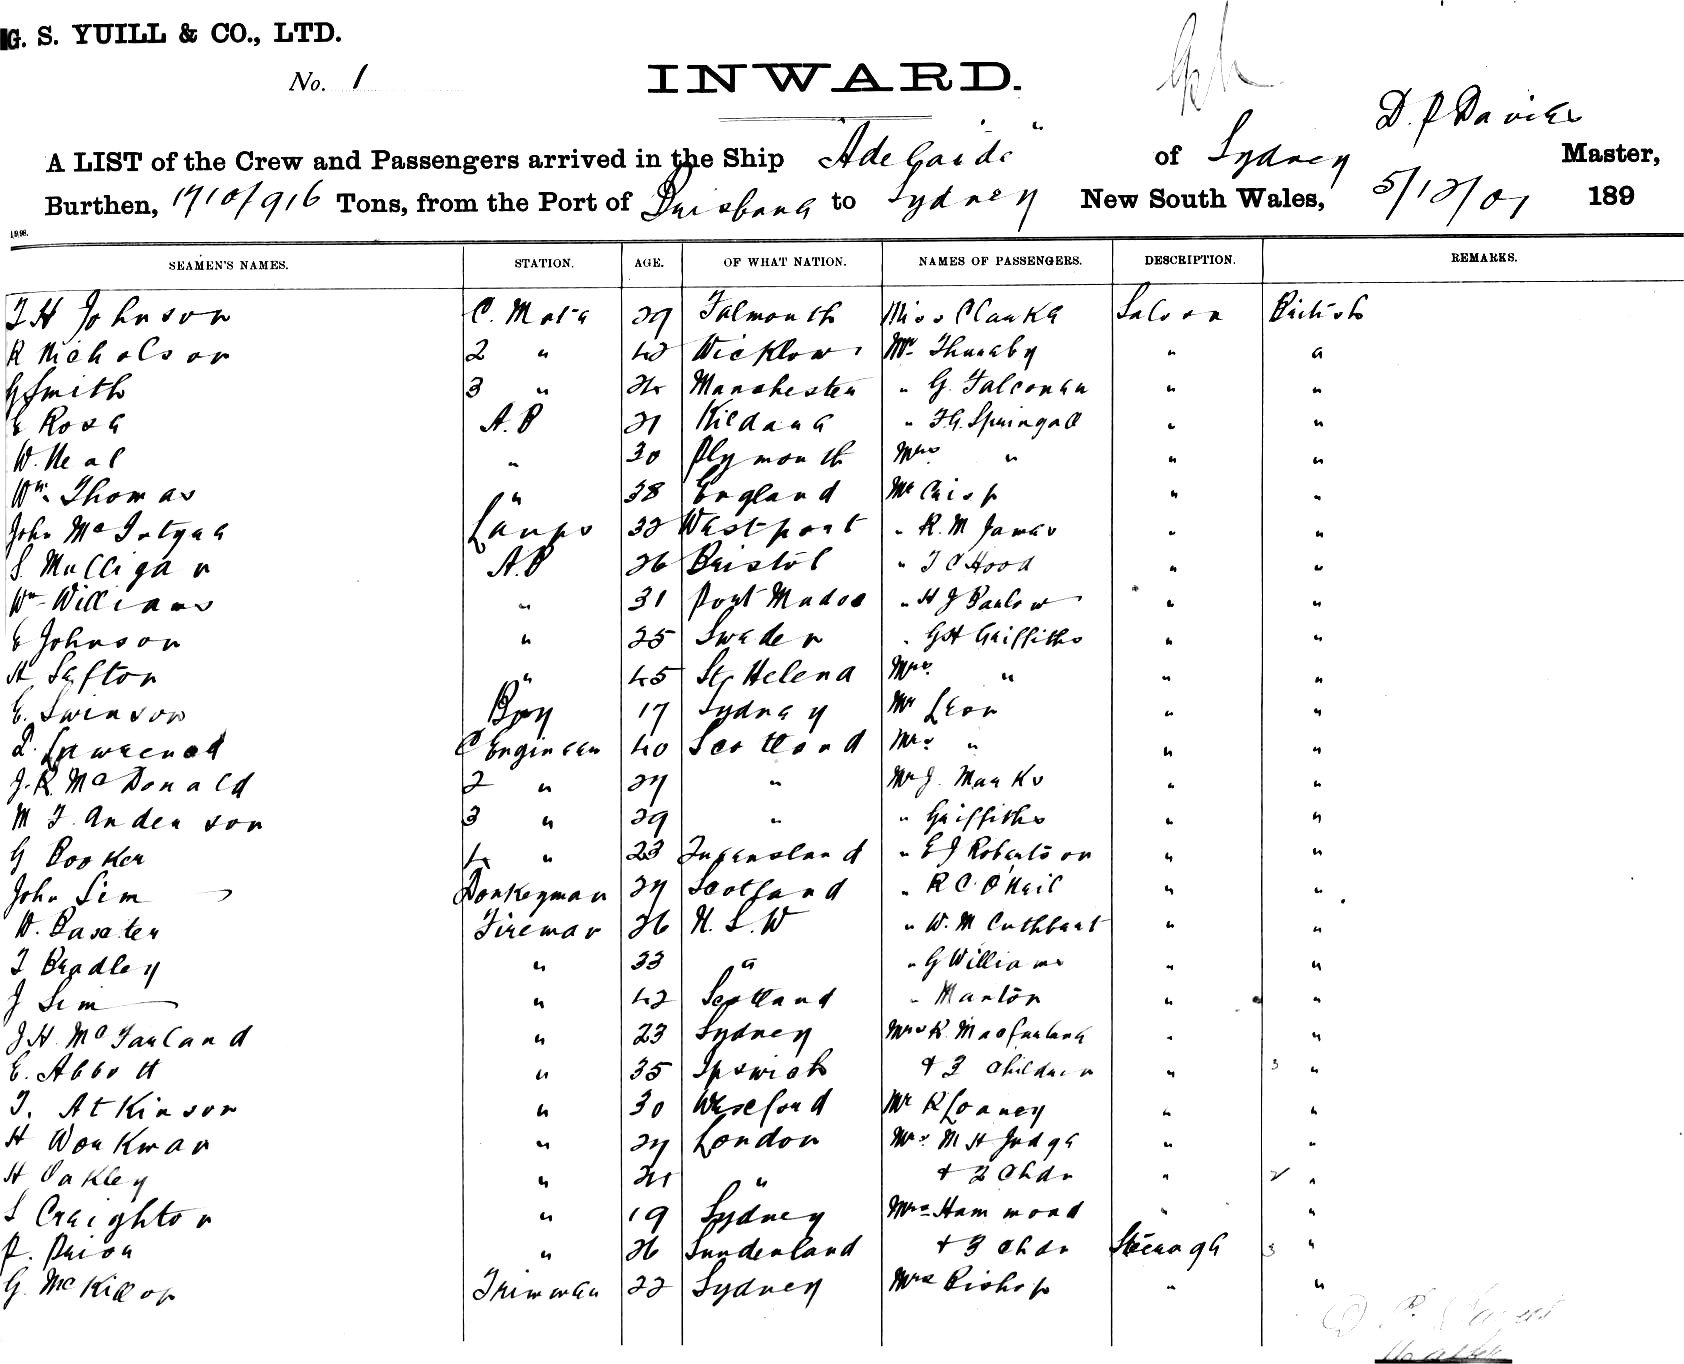 G. S. YUILL & CO., LTD.
No. 1
INWARD.
D. P Davies
A LIST of the Crew and Passengers arrived in the Ship "Adelaide" of Sydney Master,
Burthen, 1710/916 Tons, from the Port of Brisbane to Sydney New South Wales, 5/12/01 189
SEAMEN'S NAMES. STATION. AGE. OF WHAT NATION. NAMES OF PASSENGERS. DESCRIPTION. REMARKS.
T H Johnson C. Mate 29 Falmouth Miss Clarke Saloon British
R Nicholson 2 " 42 Wicklow Mr Thursby " "
G Smith 3 " 24 Manchester " G. Falconer " "
E Rose A.B 21 Kildare " F.G. Springall " "
W. Neal " 30 Plymouth Mrs " " "
Wm. Thomas " 38 England Mr Crisp " "
John McIntyre Lamps 32 Westport " R. M James " "
S. Mulligan A.B 26 Bristol " T C Hood " "
Wm Williams " 31 Port Madoc " H J Barlow " "
E Johnson " 25 Sweden " G H Griffiths " "
H Sefton " 45 St Helena Mrs " " "
E. Swinson Boy 17 Sydney Mr Leon " "
L. Lawrence C Engineer 40 Scotland Mrs " " "
J. R. McDonald 2 " 27 " Mr J. Marks " "
M J. Anderson 3 " 29 " " Griffiths " "
G Booker 4 " 23 Queensland " E J Robertson " "
John Sim Donkeyman 27 Scotland " R C. O'Neil " "
W. Baxter Fireman 26 N. S. W " W. M Cuthbert " "
T Bradley " 33 " " G Williams " "
J Sim " 42 Scotland " Manton " "
J. H. McFarland " 23 Sydney Mrs R. Macfarlane " "
E. Abbott " 35 Ipswich + 3 Children " 3 "
T. Atkinson " 30 Wexford Mr R Looney " "
H Workman " 27 London Mrs M H Judge " "
H Oakley " 21 " + 2 Chdn " 2 "
S Creighton " 19 Sydney Mrs Hammond " "
P. Price " 26 Sunderland + 3 Chdn Steerage 3 "
G. McKillop Trimmer 22 Sydney Mrs Bishop " "